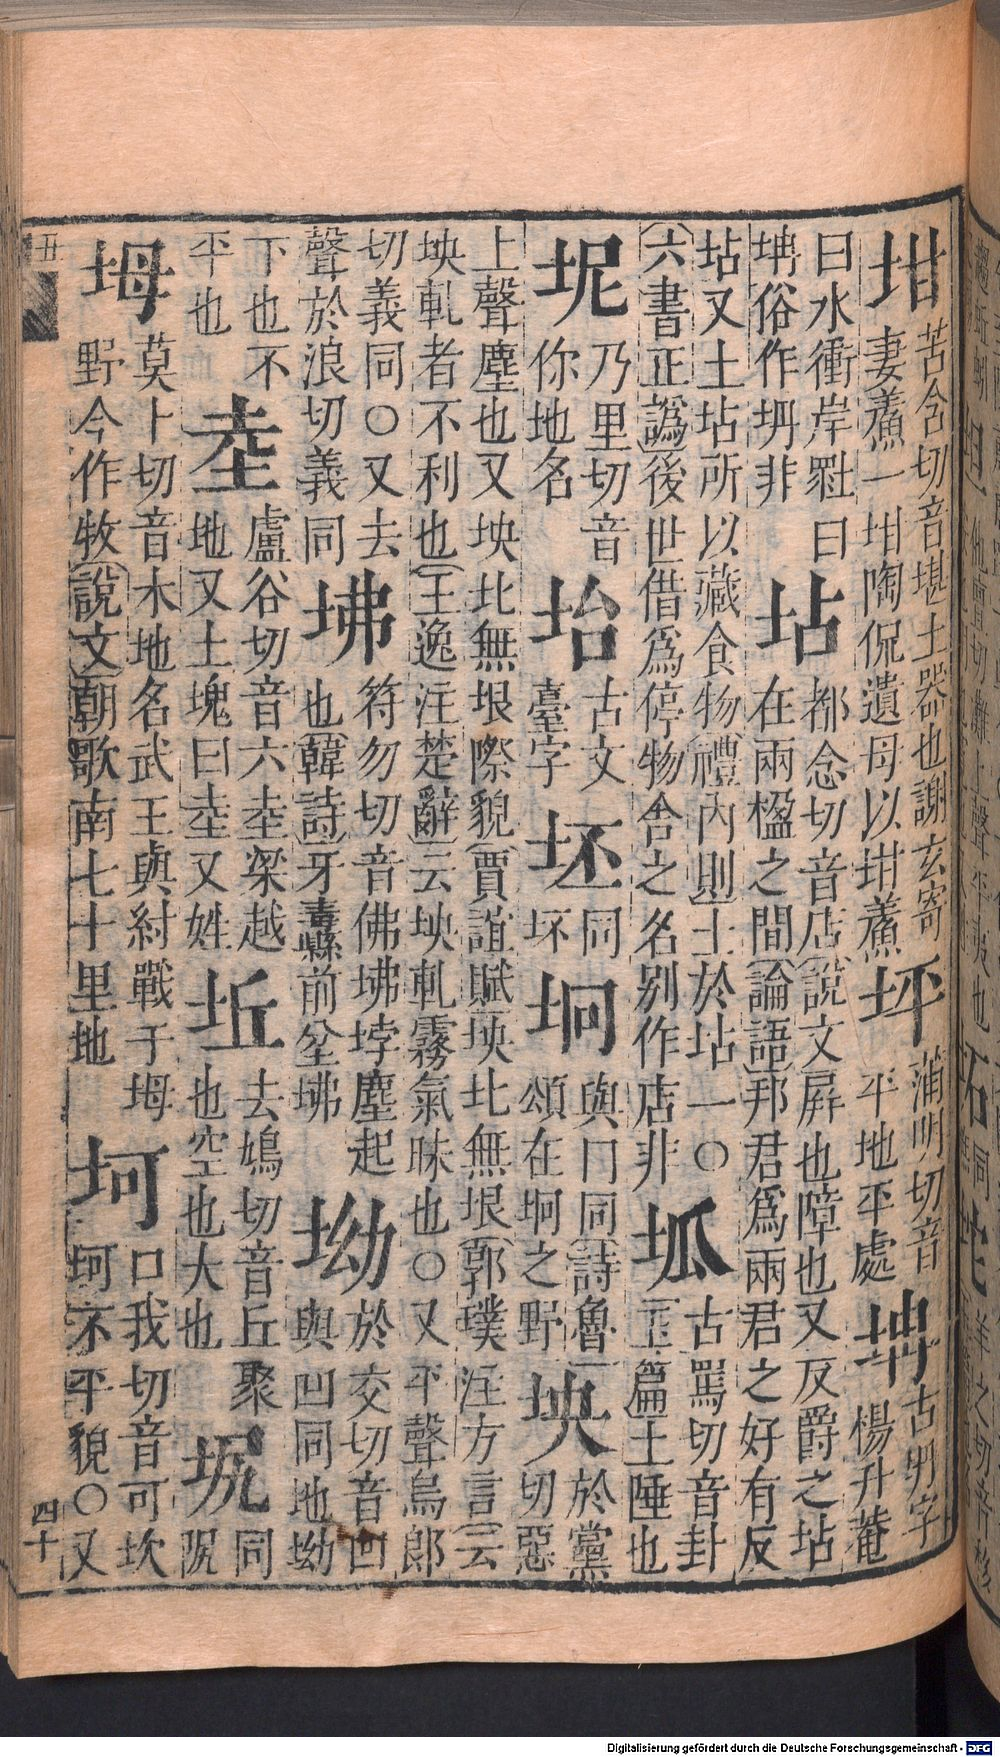 坩苦含切音堪土器也謝玄寄妻鮺一坩陶侃遺母以坩鮺坪蒲明切音平地平處古坍字楊升菴
曰水衝岸曰坢俗作坍非坫都念切音店說文屏也障也又反爵之坫在兩楹之間論語邦君爲兩君之好有反
坫又土坫所以藏食物禮内則士於坫一○六書正譌後世借爲停物舍之名别作店非坬古罵切音卦玉篇土陲也
坭乃里切音你地名坮古文臺字坯同坏坰與冂同詩魯頌在坰之野坱於黨切惡
上聲塵也又坱北無垠際貌賈誼賦坱北無垠郭璞注方言云坱軋者不利也王逸注楚辭云坱軋霧氣昧也○又平聲烏郎
切義同○又去聲於浪切義同坲符勿切音佛坲塵起也韓詩牙纛前坌坲坳於交切音凹與凹同地坳
下也不平也坴盧谷切音六坴梁越地又土塊曰坴又姓坵去鳩切音丘聚也空也大也同
坶莫卜切音木地名武王與紂戰于坶野今作牧說文朝歌南七十里地坷口我切音可坎坷不平貌○又
丑
四十
Digitalisierung gefördert durch die Deutsche Forschungsgemeinschaft - DFG